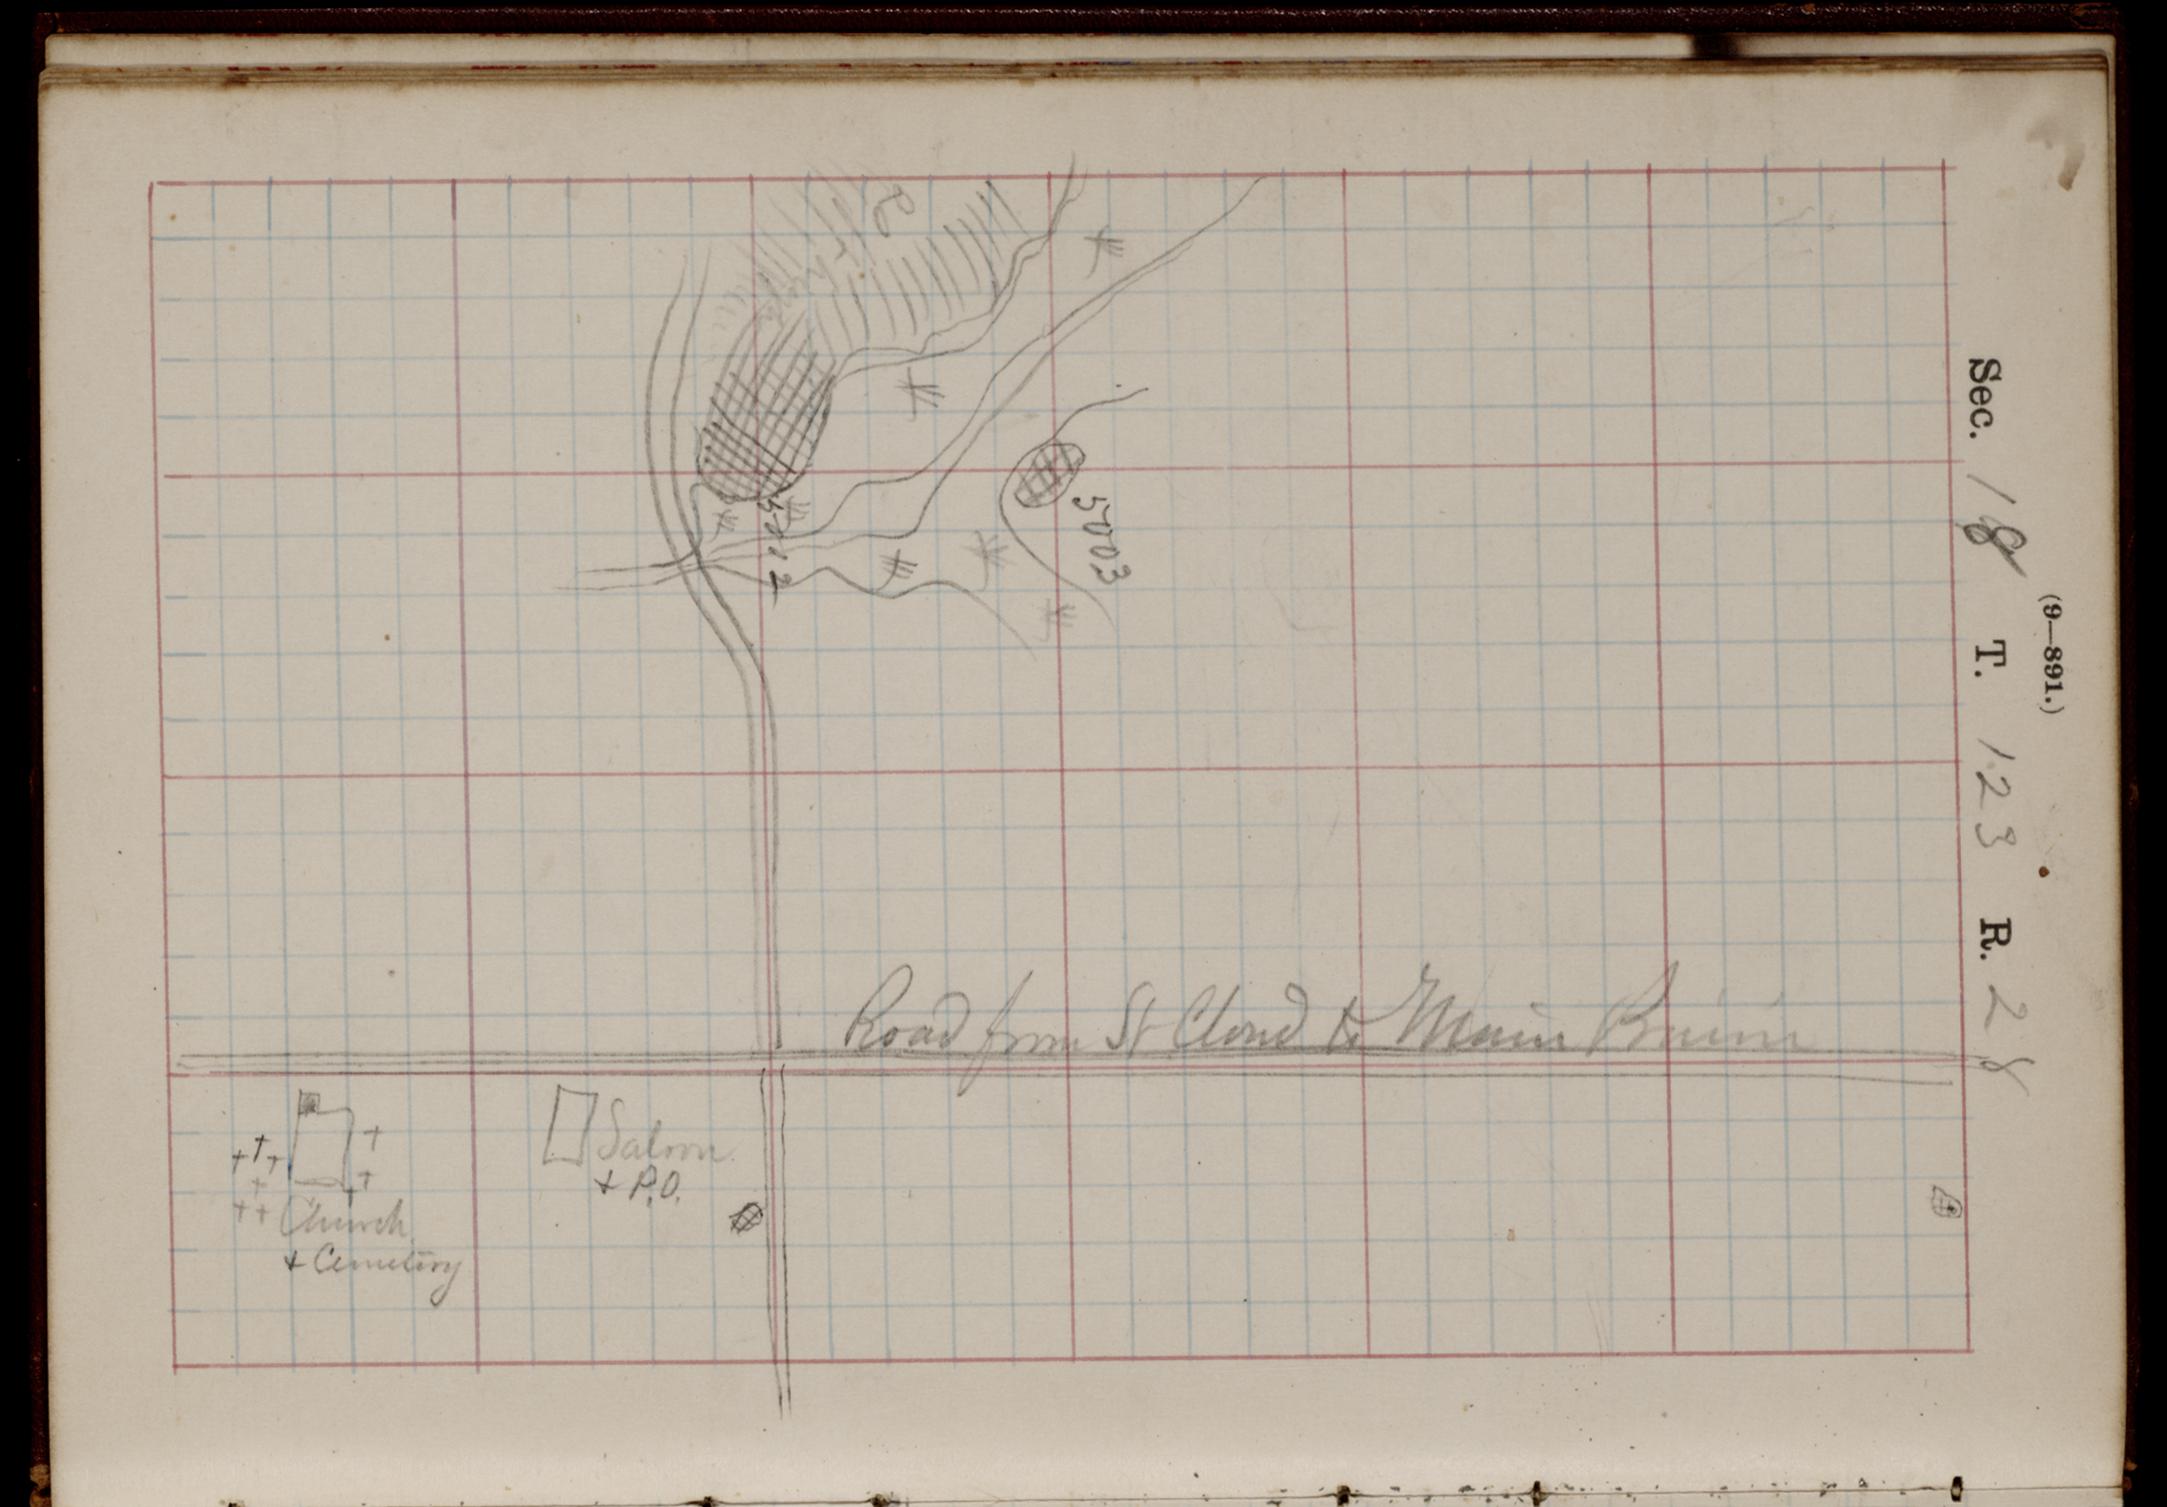 Sec. 18 T. 123 R. 28
(9—891.)
5012
5003
Road from St Cloud to Main
Saloon
+ P.O.
Church
+ Cemetery